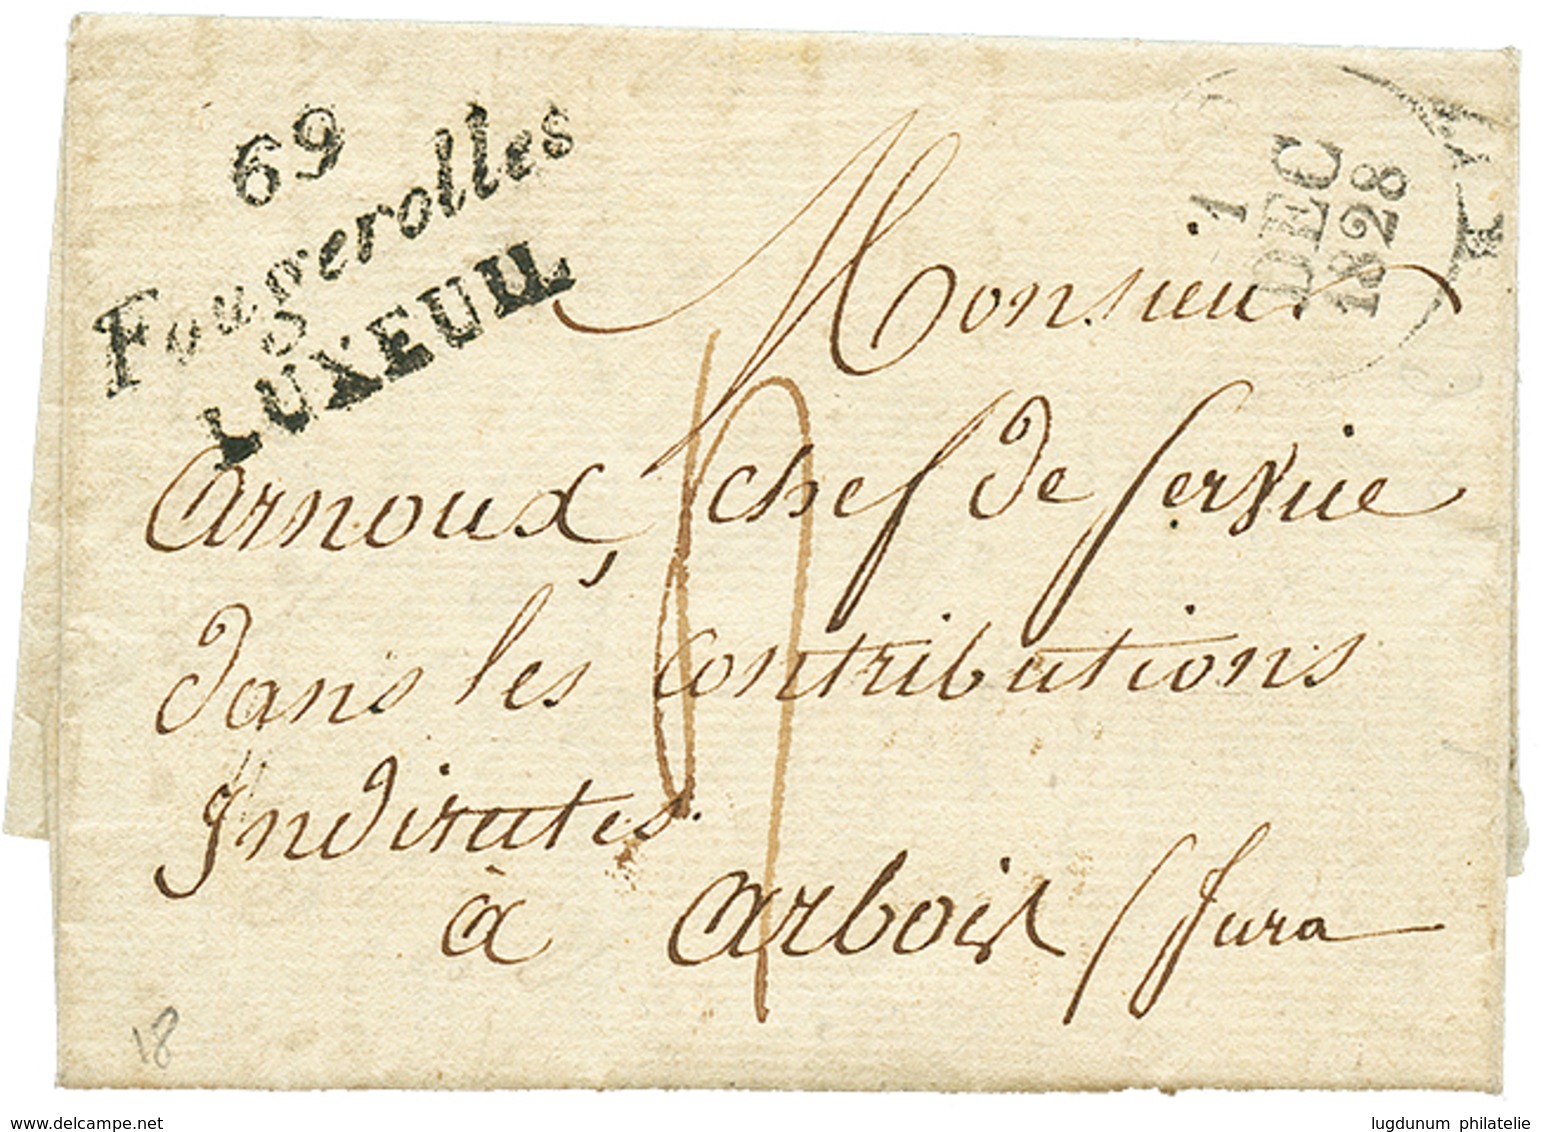 69
Fougerolles
LUXEUIL
1
DEC
1828
Monsieur
Arnoux, chef de Service
dans les contributions
Indirectes.
à Arbois / Jura
4
18
www.delcampe.net
lugdunum philatelie